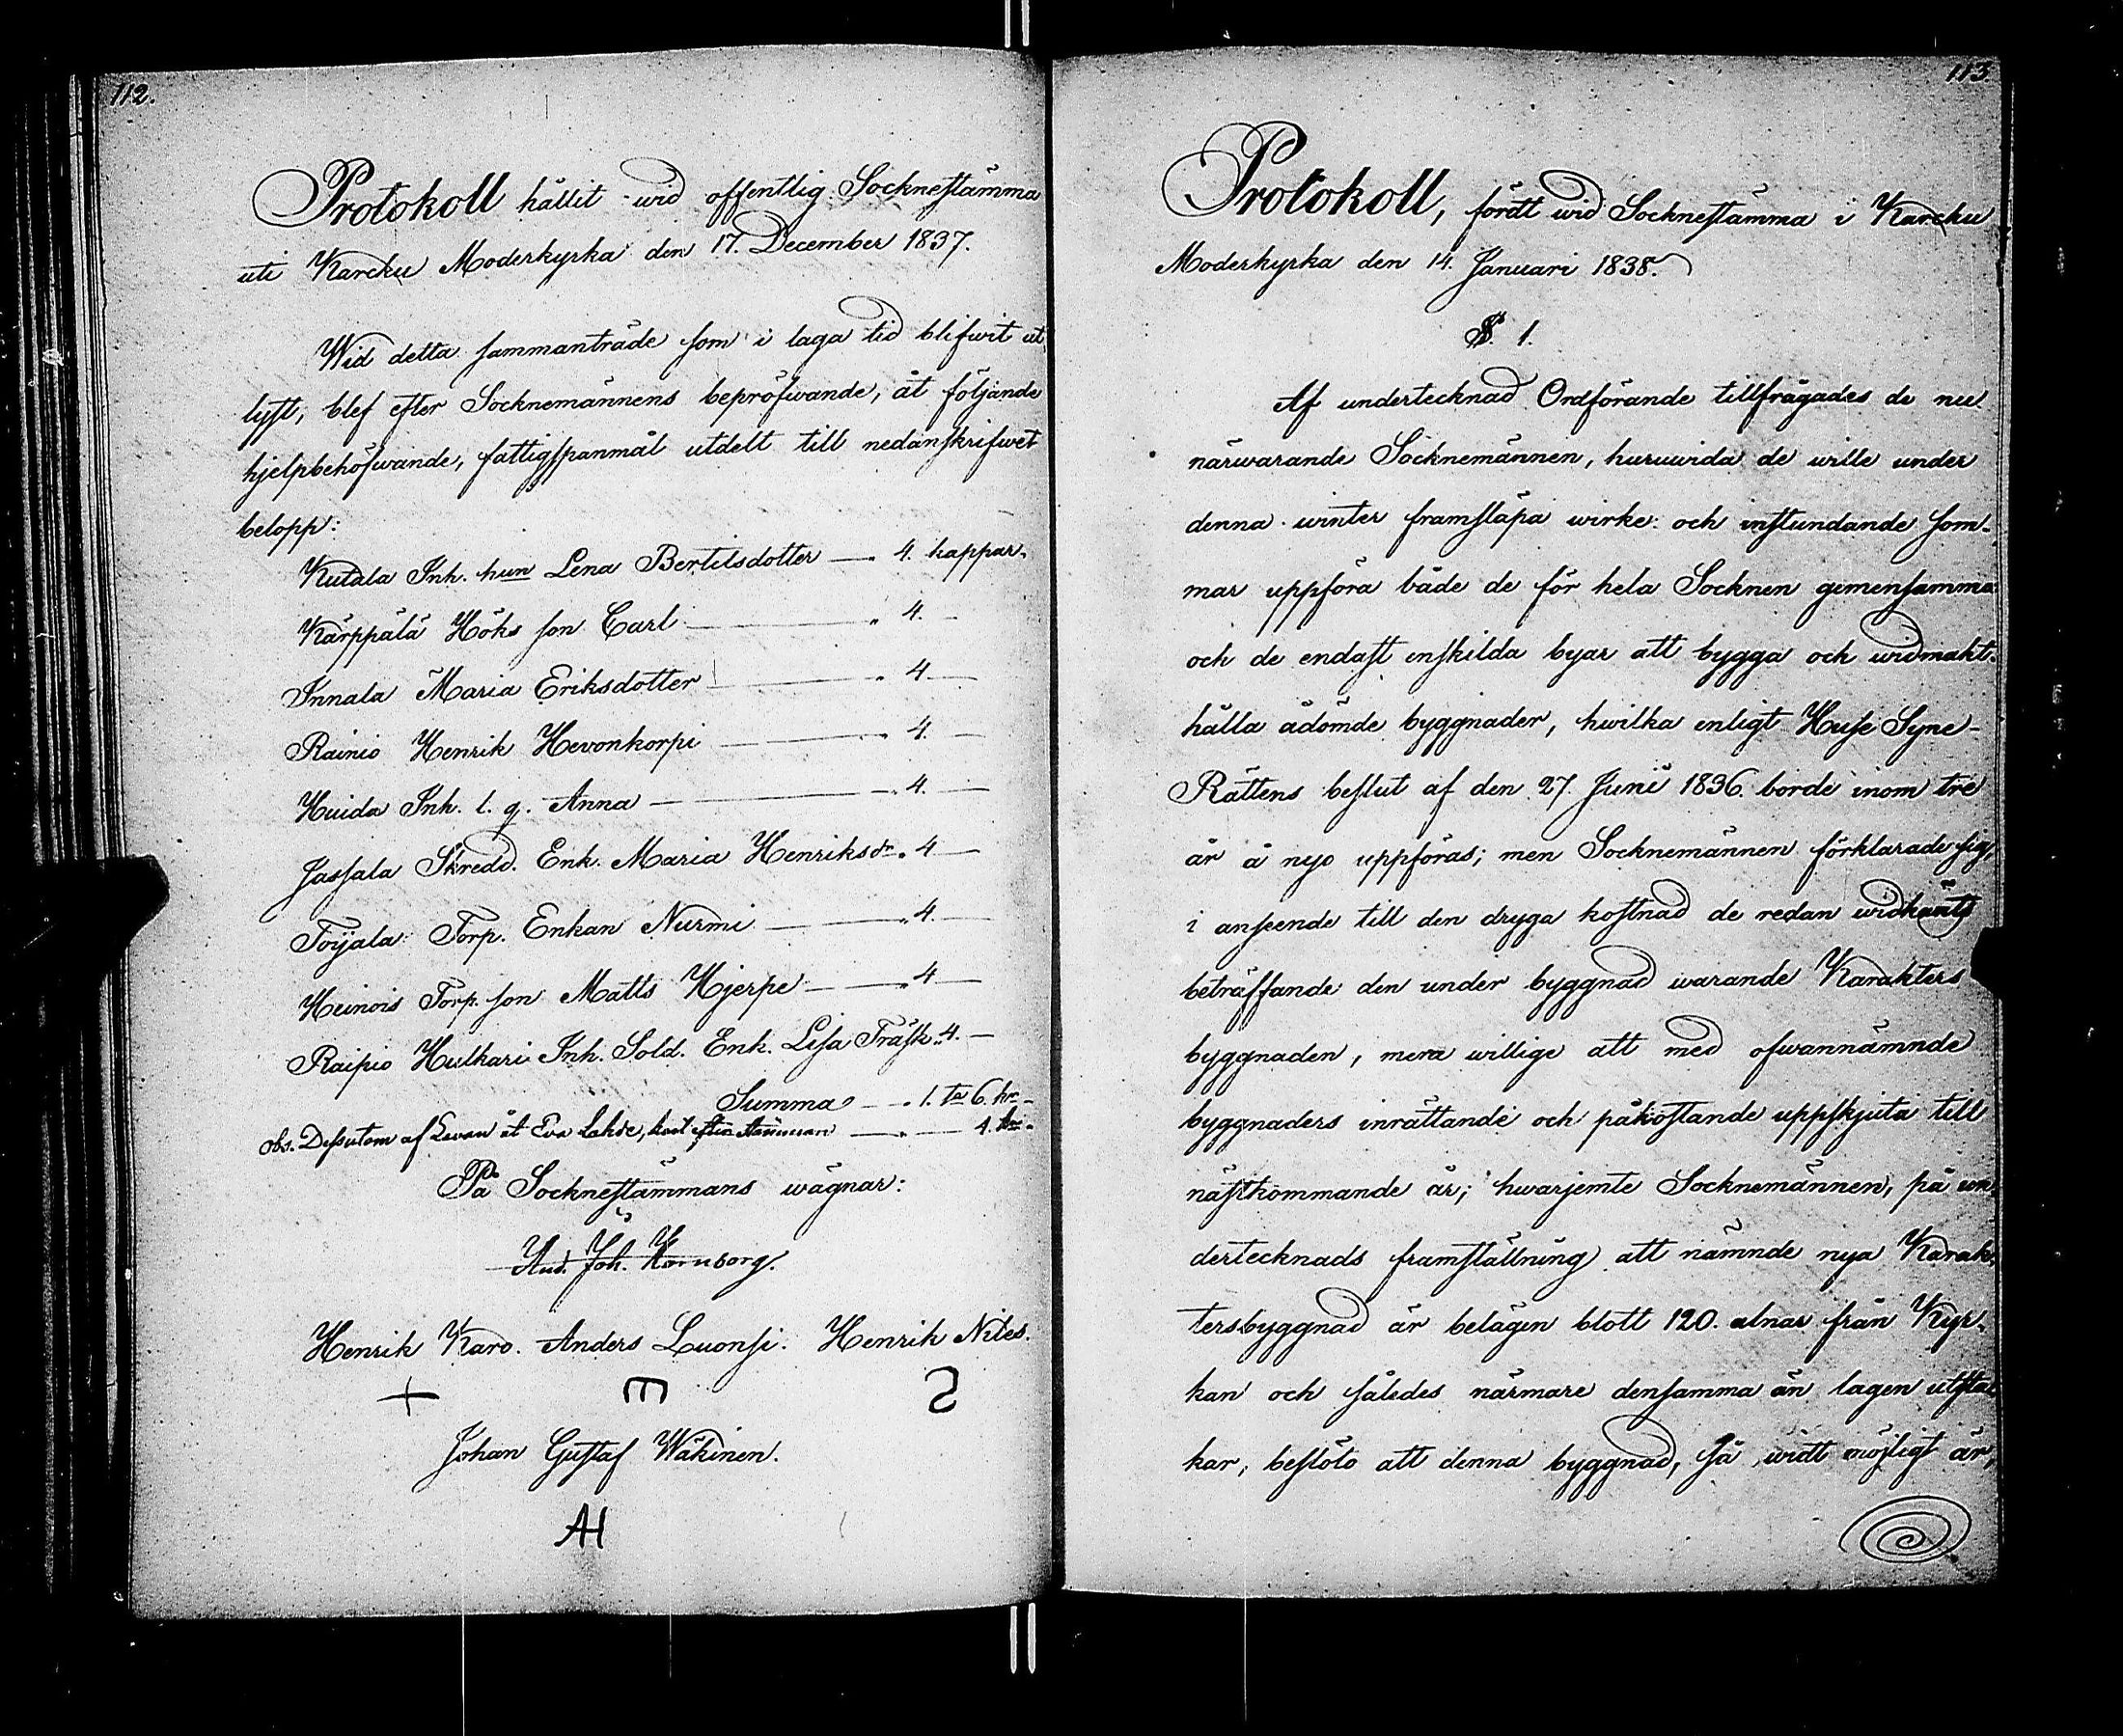 112.
Protokoll hållit wid offentlig Socknestämma
uti Karcku Moderkyrka den 17. December 1837.
Wid detta sammanträde som i laga tid blifwit ut
lyst, blef efter Socknemännens bepröfwande, åt följande
hjelpbehöfwande, fattigspanmål utdelt till nedanskrifwet
belopp:
Kutala Inh. hun Lena Bertilsdotter — 4. kappar.
Kärppälä Höks son Carl — " 4. —
Innala Maria Eriksdotter — " 4. —
Rainio Henrik Hevonkorpi — " 4. —
Huida Inh. l. g. Anna — " 4. —
Jassala Skredd. Enk. Maria Henriksdr " 4 —
Toijala Torp. Enkan Nurmi — " 4. —
Heinois Torp. son Matts Hjerpe — " 4 —
Raipio Hulkari Inh. Sold. Enk. Lisa Träsk " 4. —
Summa — " 1. ta 6. kr —
obs. Dessutom af Levan åt Eva Lahde, — " — 4. kr.
På Socknestämmans wägnar:
And. Joh. Hornborg.
Henrik Karo. Anders Luonsi. Henrik Niles.
Johan Gustaf Wäkinen.
AH
113
Protokoll, fördt wid Socknestämma i Karcku
Moderkyrka den 14. Januari 1838.
§. 1.
Af undertecknad Ordförande tillfrågades de nu
närwarande Socknemännen, huruwida de wille under
denna winter framsläpa wirke och instundande som-
mar uppföra både de för hela Socknen gemensamma
och de endast enskilda byar att bygga och widmakt-
hålla ådömde byggnader, hwilka enligt Huse Syne-
Rättens beslut af den 27. Junii 1836. borde inom tre
år å nyo uppföras; men Socknemännen förklarade sig,
i anseende till den dryga kostnad de redan widkänts
beträffande den under byggnad warande Karakters
byggnaden, mera willige att med ofwannämnde
byggnaders inrättande och påkostande uppskjuta till
nästkommande år; hwarjemte Socknemännen, på un-
dertecknads framställning att nämnde nya Karak-
tersbyggnad är belägen blott 120. alnar från Kyr-
kan och således närmare densamma än lagen utsta-
kar, beslöto att denna byggnad, så widt möjligt är,